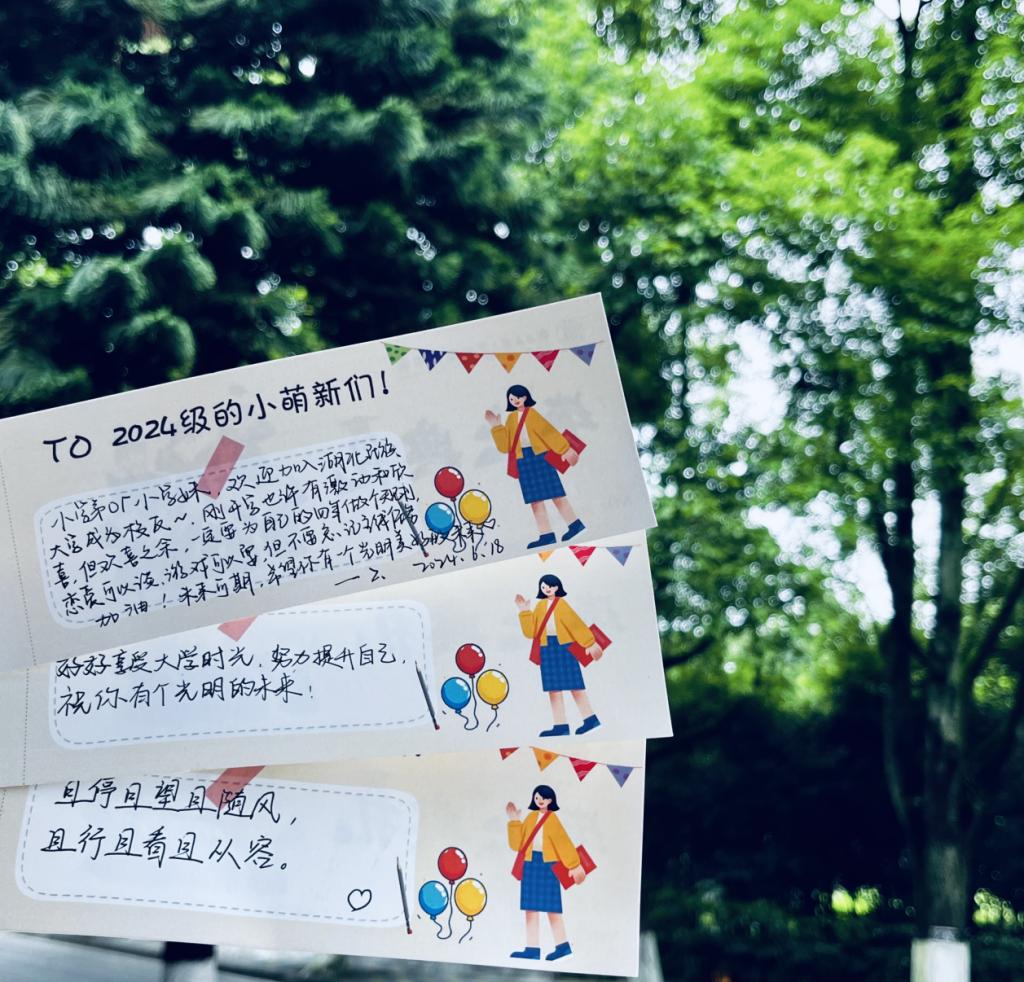 TO 2024级的小萌新们!
小学弟or小学妹，欢迎加入湖北民族
大学成为校友~，刚开学也许有激动和欣
喜，但欢喜之余，一定要为自己的四年做个规划，
恋爱可以谈，游戏可以耍，但不要忘记学习
加油！未来可期，希望你有个光明美好的未来。
2024.6.18
好好享受大学时光，努力提升自己，
祝你有个光明的未来！
且停且望且随风，
且行且看且从容。